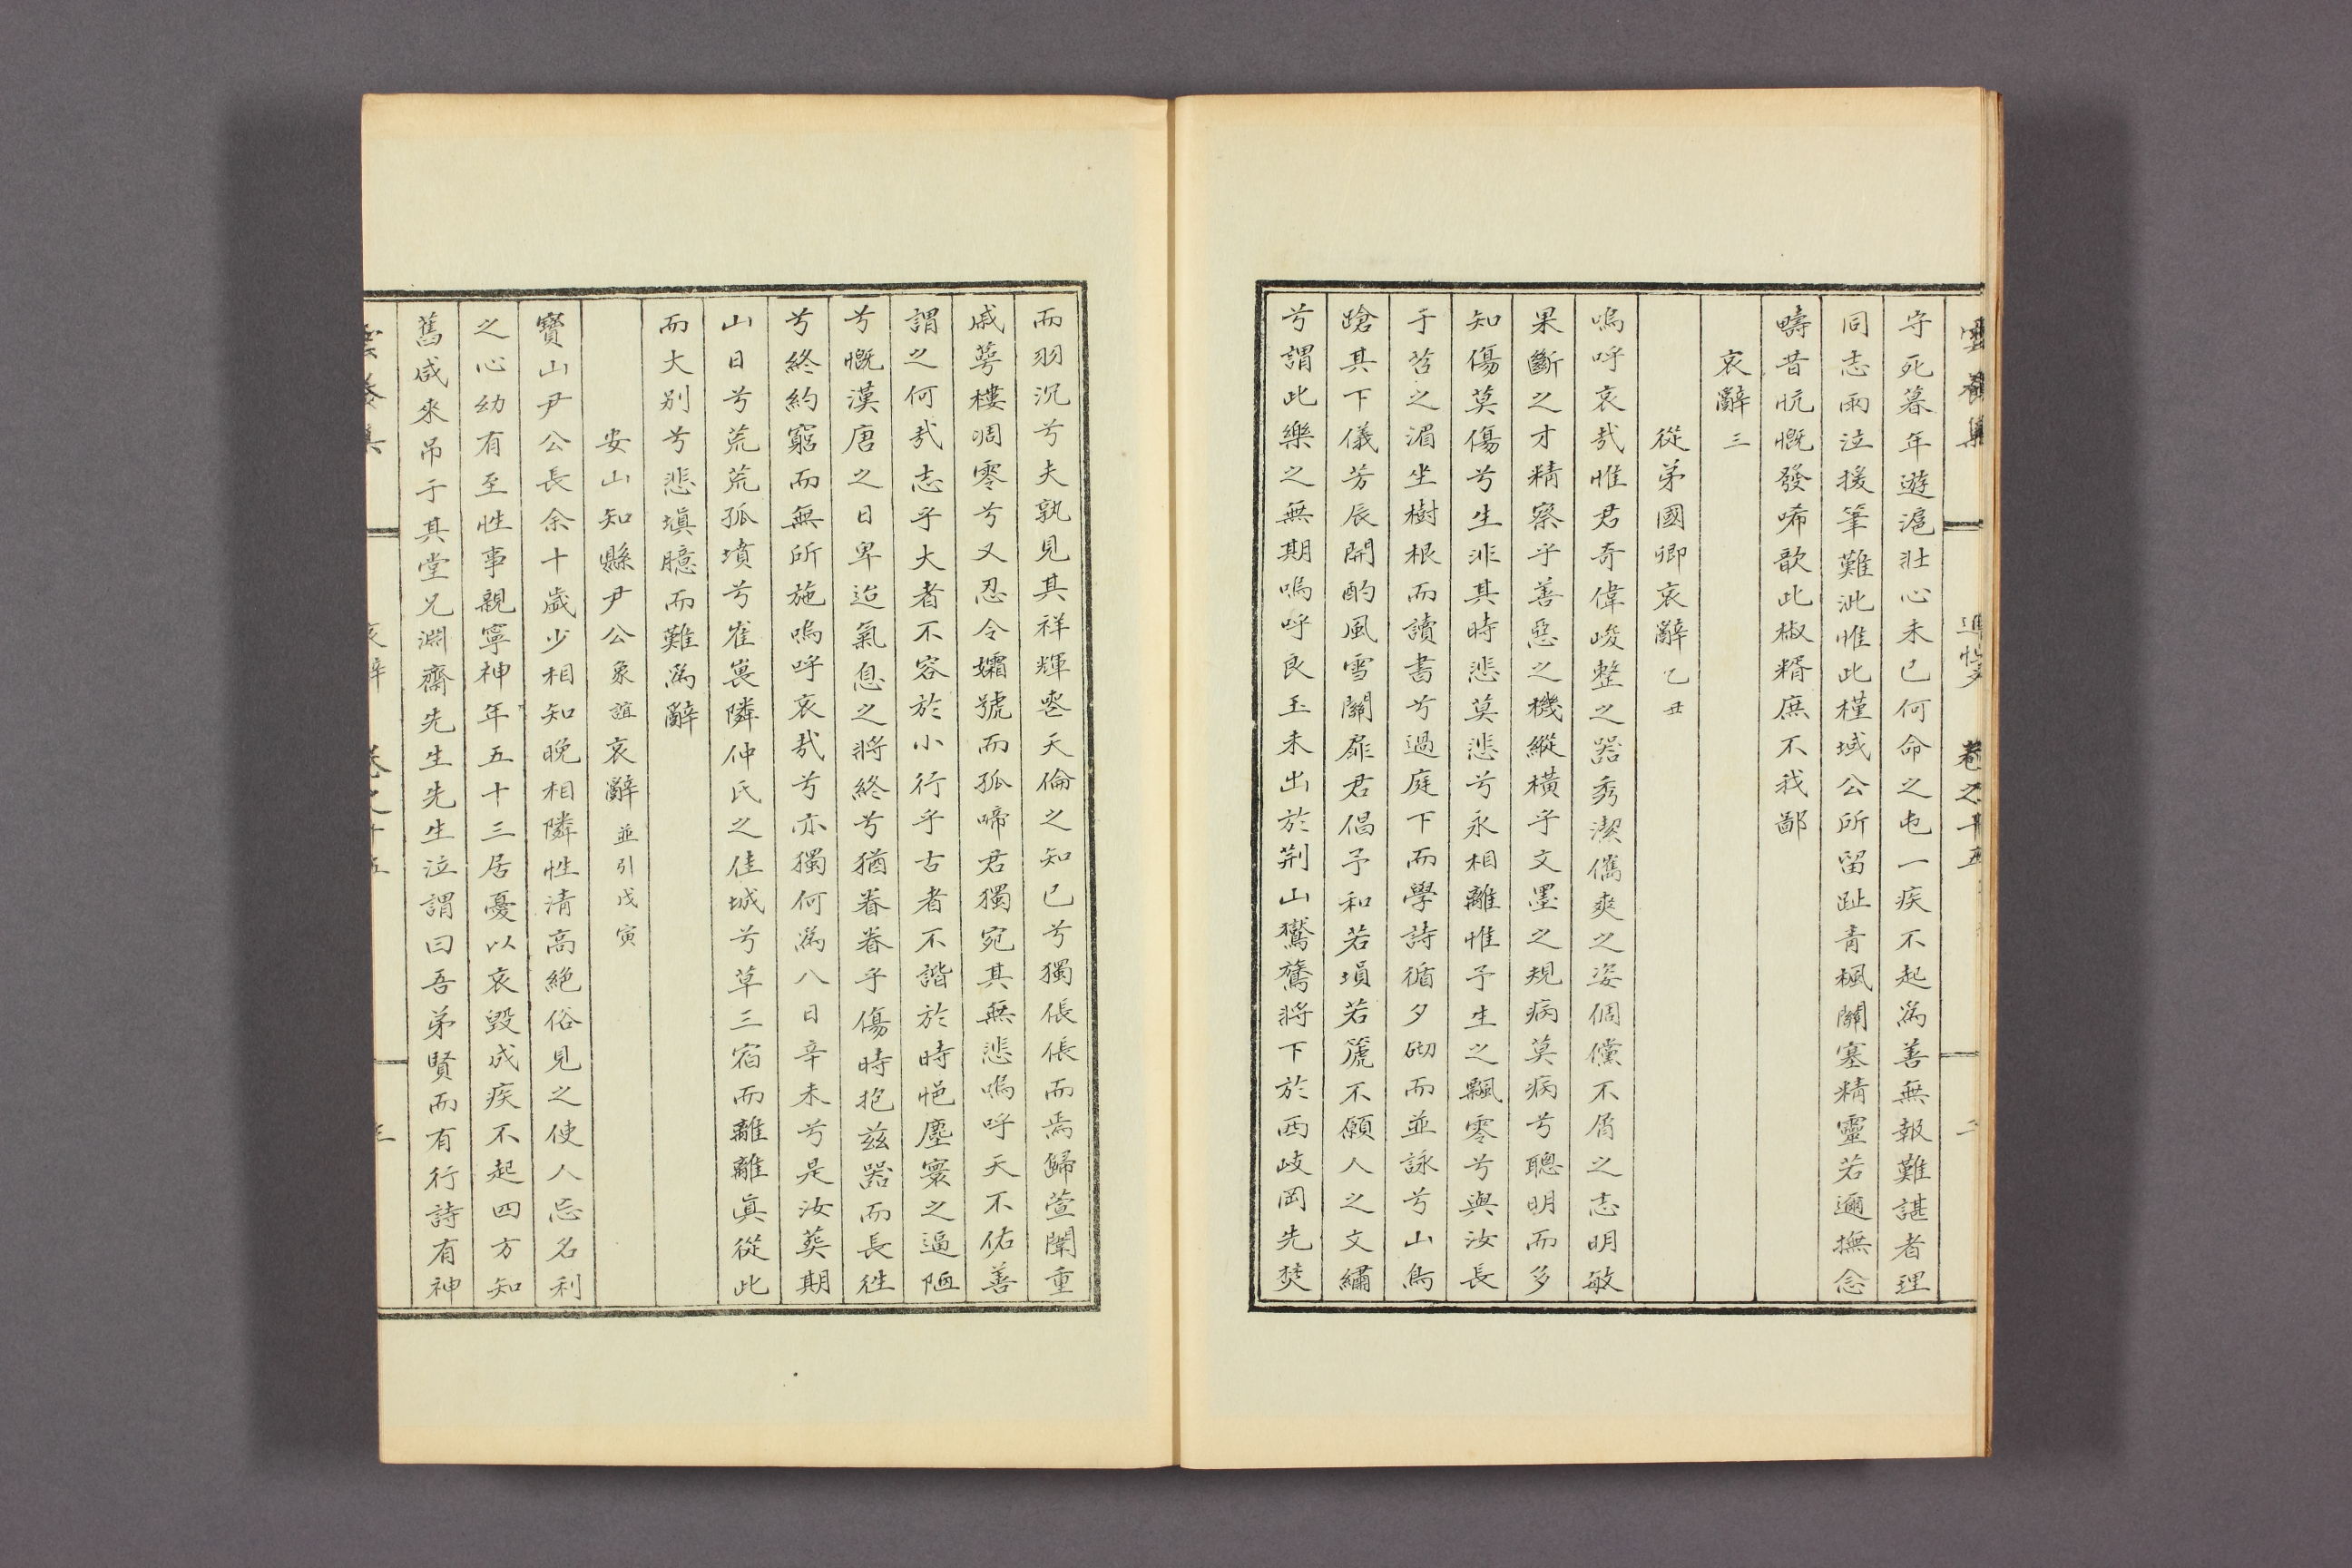 雲養集 追悼文 卷之十五 二
守死暮年遊滬壯心未已何命之屯一疾不起爲善無報難諶者理
同志兩泣援筆難泚惟此槿域公所留趾靑楓關塞精靈若邇撫念
疇昔忼慨發唏歆此椒糈庶不我鄙
哀辭 三
從弟國卿哀辭 乙丑
嗚呼哀哉惟君奇偉峻整之器秀潔儁爽之姿倜儻不屑之志明敏
果斷之才精察乎善惡之機縱橫乎文墨之規病莫病兮聰明而多
知傷莫傷兮生非其時悲莫悲兮永相離惟予生之飄零兮與汝長
于苕之湄坐樹根而讀書兮過庭下而學詩循夕砌而並詠兮山鳥
蹌其下儀芳辰開酌風雪關扉君倡予和若塤若篪不願人之文繡
兮謂此樂之無期嗚呼良玉未出於荆山鸑鷟將下於西岐岡先焚
而羽沉兮夫孰見其祥輝嗟天倫之知已兮獨倀倀而焉歸萱闈重
戚萼樓凋零兮又忍令孀號而孤啼君獨宛其無悲嗚呼天不佑善
謂之何哉志乎大者不容於小行乎古者不諧於時悒塵寰之逼陋
兮慨漢唐之日卑迨氣息之將終兮猶眷眷乎傷時抱玆器而長徃
兮終約窮而無所施嗚呼哀哉兮亦獨何爲八日辛未兮是汝葬期
山日兮荒荒孤墳兮崔嵬隣仲氏之佳城兮草三宿而離離眞從此
而大别兮悲塡臆而難爲辭
安山知縣尹公象誼哀辭 並引戊寅
寶山尹公長余十歲少相知晩相隣性淸高絶俗見之使人忘名利
之心幼有至性事親寧神年五十三居憂以哀毁成疾不起四方知
舊咸來吊于其堂兄淵齋先生先生泣謂曰吾弟賢而有行詩有神
雲養集 哀辭 卷之十五 三